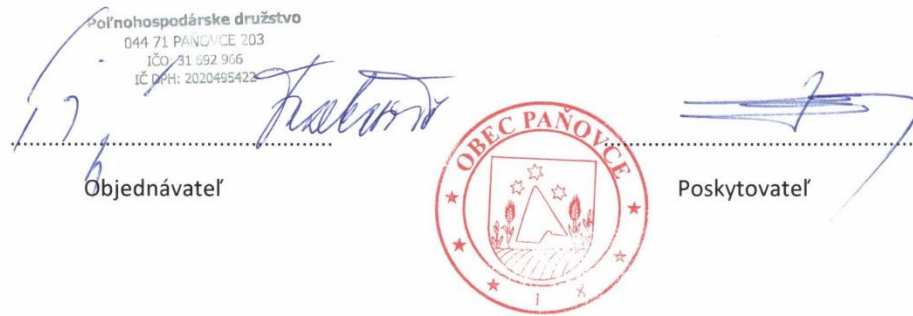 Poľnohospodárske družstvo
044 71 PAŇOVCE 203
IČO: 31 692 966
IČ DPH: 2020495422
Objednávateľ
OBEC PAŇOVCE
1
Poskytovateľ